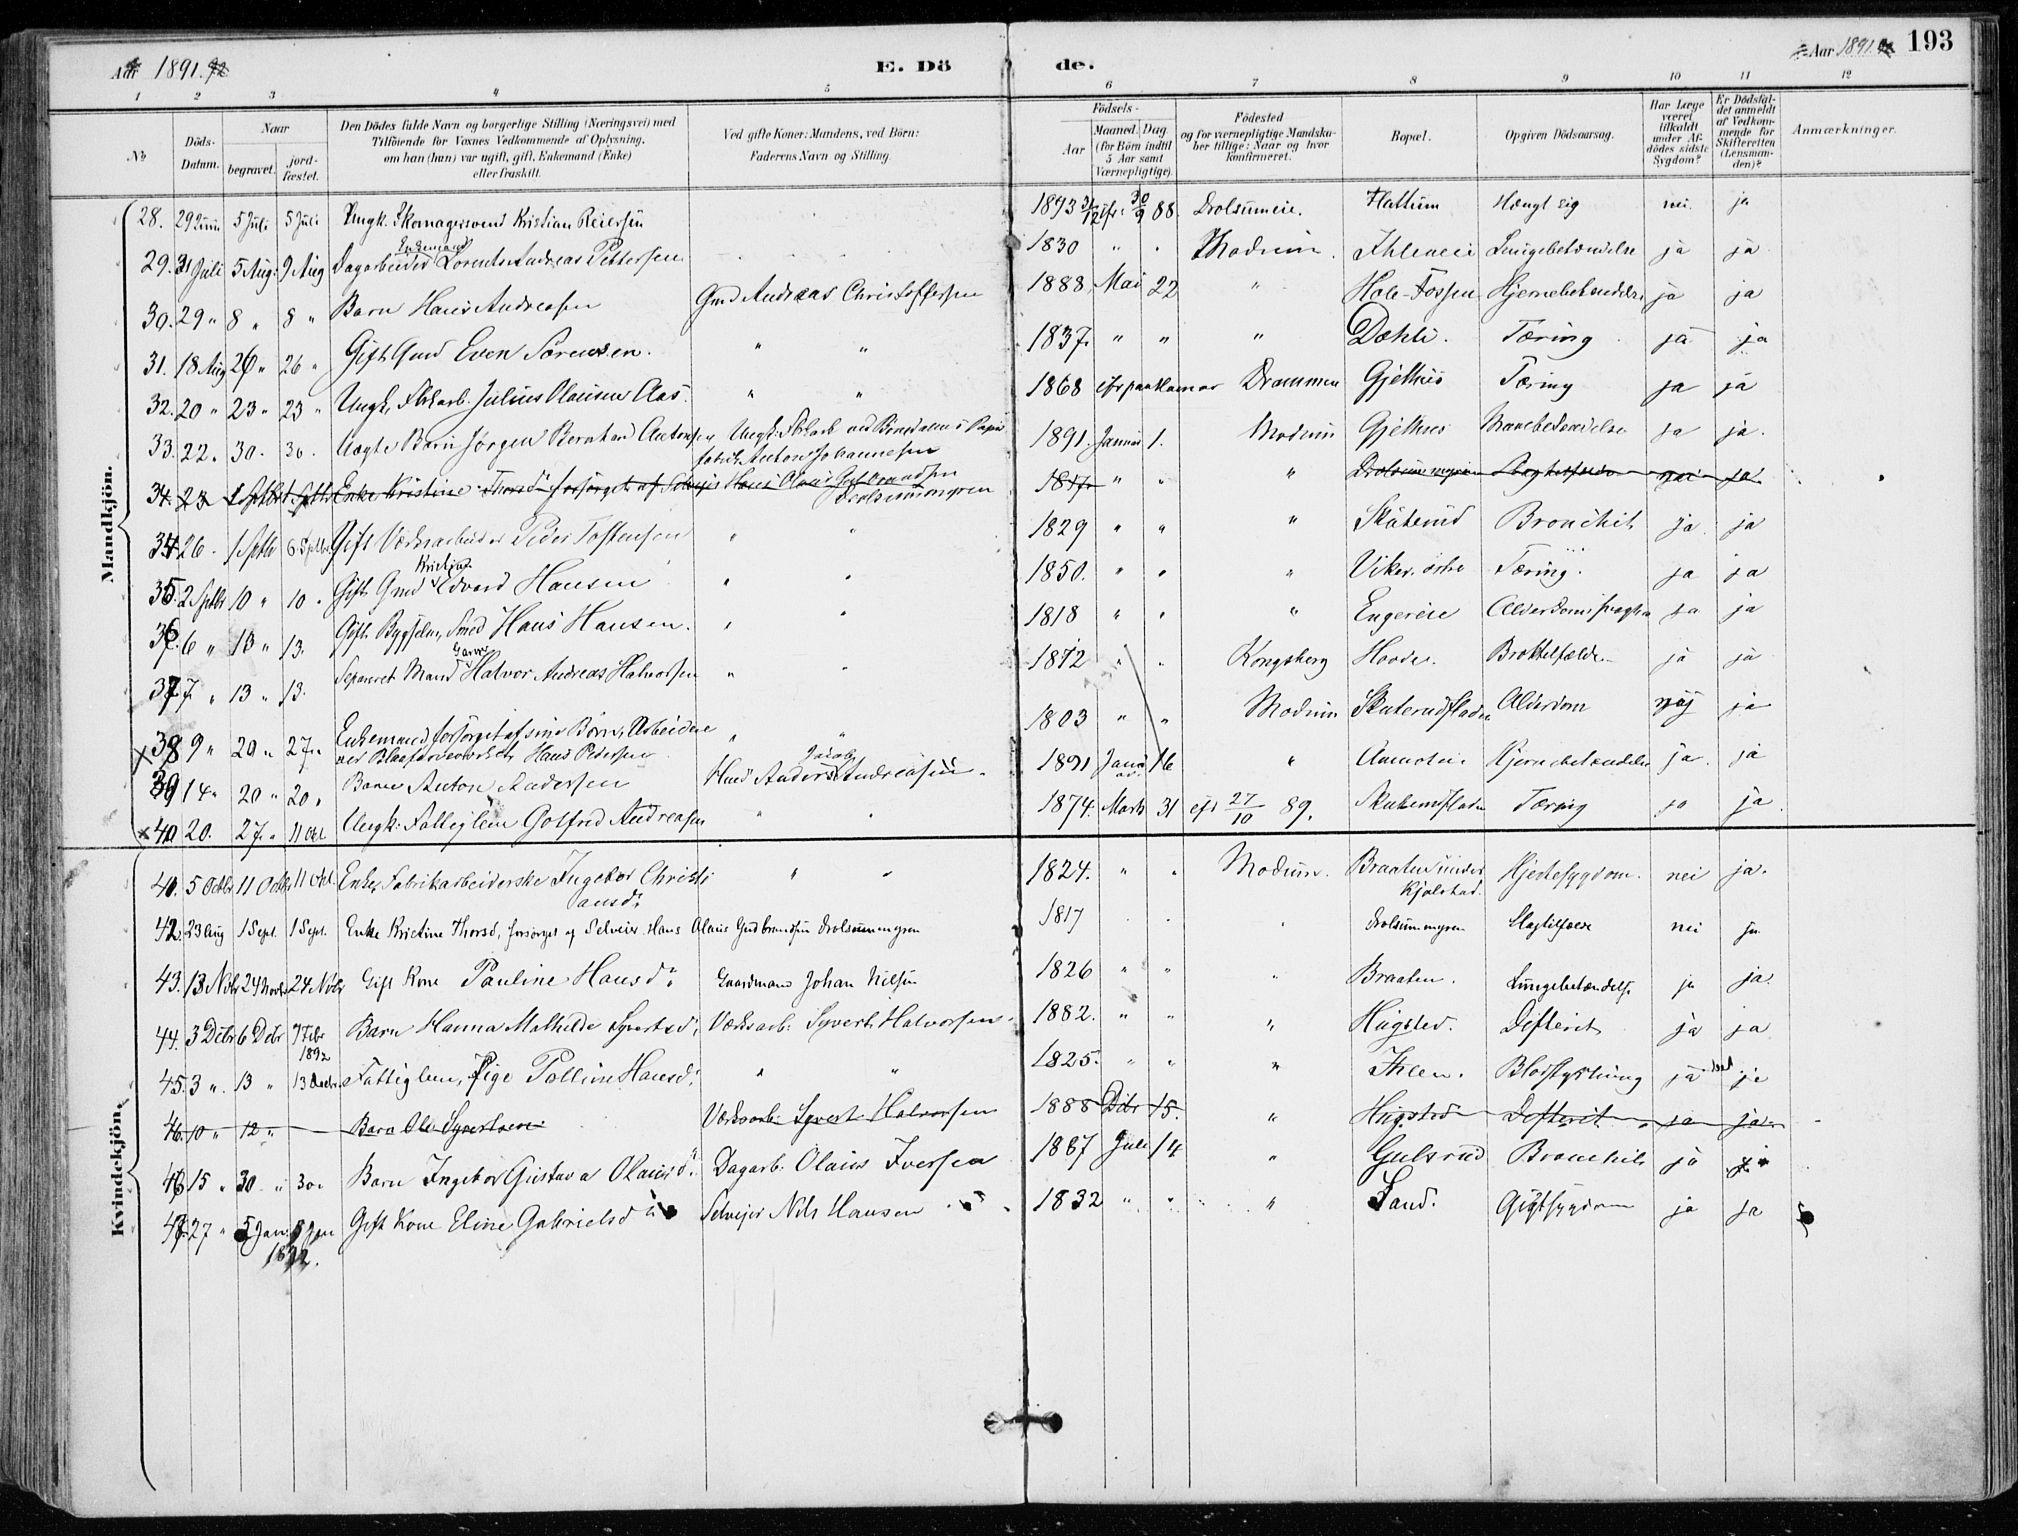 Aar 1891.
E. Dö de.
Aar 1891.
193
1 2 3 4 5 6 7 8 9 10 11 12
No
Döds-Datum.
Naar
begravet.
jord-fæstet.
Den Dödes fulde Navn og borgerlige Stilling (Næringsvei) med
Tilföiende for Voxnes Vedkommende af Oplysning,
om han (hun) var ugift, gift, Enkemand (Enke)
eller fraskilt.
Ved gifte Koner: Mandens, ved Börn:
Faderens Navn og Stilling.
Födsels-
Aar
Maaned. Dag
(for Börn indtil
5 Aar samt
Værnepligtige).
Födested
og for værnepligtige Mandska-
ber tillige: Naar og hvor
konfirmeret.
Bopæl.
Opgiven Dödsaarsag.
Har Læge
været
tilkaldt
under Af-
dödes sidste
Sygdom?
Er Dödsfal-
det anmeldt
af Vedkom-
mende for
Skifteretten
(Lensman-
den)?
Anmærkninger.
Mandkjön.
28. 29 Juni 5 Juli 5 Juli Ungk. Skomagersvend Kristian Reiersen 88. Drolsumeie. Hattum Hængt sig nei ja
29. 31 Juli 5 Aug. 9 Aug Dagarbeider Enkemand Lorents Andreas Pettersen 1830 " " Modum. Ihleneie Lungebetændelse ja ja
30. 29 " 8 " 8 " Barn Hans Andreasen Gmd Andreas Christoffersen 1888 Mai 22 " Hole-Fossen Hjernebetændelse ja ja
31. 18 Aug 26 " 26 " Gift Gmd Even Sørensen. " " 1837. " " " Dæhli. Tæring ja ja
32. 20 " 23 " 23 " Ungk. Fbkarb. Julius Olausen Aas. " " 1868 Drammen Gjethus Tæring ja ja
33. 22. 30. 30. Uægte Barn Jørgen Bernhard Antonsen Ungk. Fbkarb. Anton Johannesen 1891. Januar 1. Modum Gjethus Mavebetændelse ja ja.
34. 23 1 Septbr 1 Septbr Enke Kristine Thorsd. forsørget af Selveier Hans Olaus Gudbrandsen Drolsummyren 1817 " " " Drolsummyren Slagtilfælde nei ja
34 26. 1 Sptbr 6 Sptbr Gift Værksarbeider Peder Tostensen " " 1829 " " " Skuterud Bronchit ja ja
35. 2 Sptbr 10 " 10 " Gift Gmd Kristian Edvard Hansen " " 1850. " " " Viker østre Tæring. ja ja
36. 6 " 13 " 13. Gift Bygselm. Smed Hans Hansen. " " 1818 " " " Engereie Alderdomssvaghed ja ja
37 7 " 13 " 13. Separeret Mand Garver Halvor Andreas Halvorsen " " 1812 " " Kongsberg Hovde. ja ja
38 9 " 20 " 27 " Enkemand forsørget af sine Børn, Arbeider ved Blaafarveværket Hans Pedersen " " 1803 " " Modum Skuterudfladen Alderdom nej ja
39 14 " 20 " 20 " Barn Anton Andersen Anders Jacob Andreasen. 1891 Janu ar 16 " Hjernebetændelse ja ja
40 20. 27. " 11 Okt. Ungk. Fattiglem Gotfred Andreasen " " 1874. Marts 31 eft 27/10 89. Skuterudfladen Tæring ja ja
Kvindekjön.
41. 5 Octbr 11 Octbr 11 Okt. Enke, Fabrikarbeiderske Ingebor Christiansd. " " 1824. " " Modum. Braaten under Kjølstad. Hjertesygdom. nei ja.
42. 23 Aug 1 Sept. 1 Sept. Enke Kristine Thorsd, forsørget af Selveier Hans Olaus Gudbrandsen Drolsummyren 1817 Drolsummyren Slagtilfælde nei ja
43. 13 Nvbr 24 Novbr 24 Nvbr Gift Kone Pauline Hansd. Gaardmand Johan Nilsen 1826 " " " Braaten. Lungebetændelse ja ja.
44. 3 Dcbr 6 Dcbr 7 Febr 1892 Barn Hanna Mathilde Syvertsd. Værksarb. Syvert Halvorsen 1882. " " " Hugsted. Difterit ja ja
45. 3 " 13 " 13 Decbr. Fattiglem, Pige Palline Hansd. " " 1825. " " " Ihlen. Blodstyrtning ja ja
46. 10 " 12 " Barn Ole Syvertsen Værksarb. Syvert Halvorsen 1888 Dcbr 15. " Hugsted Difterit ja ja
46 15 " 30 " 30 " Barn Ingebor Gustava Olausd. Dagarb. Olaus Iversen 1887 Juli 14 " Gulsrud Bronchit ja ja
47 27 " 5 Jan. 5 Jan 1892. Gift Kone Eline Gabrielsd. Selvejer Nils Hansen 1832 " " " Sand. Gigtsygdom ja ja